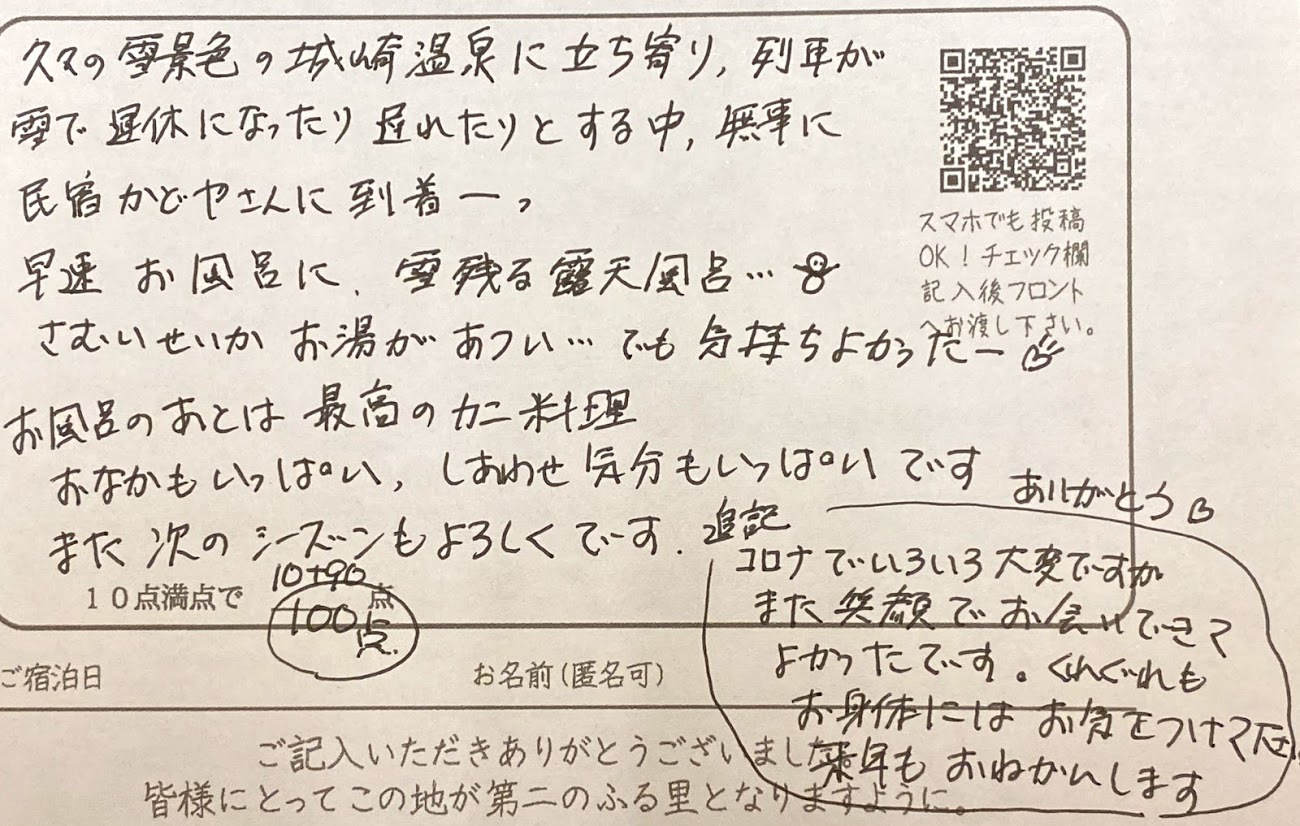 久々の雪景色の城崎温泉に立ち寄り, 列車が
雪で運休になったり遅れたりとする中, 無事に
民宿かどやさんに到着ーっ
早速 お風呂に、雪残る露天風呂…
さむいせいか お湯が あつい… でも 気持ちよかったー
お風呂のあとは 最高のカニ料理
おなかもいっぱい, しあわせ気分もいっぱいです
また 次の シーズンもよろしくでーす.
スマホでも投稿
OK！チェック欄
記入後フロント
へお渡し下さい。
ありがとう
10+90
10点満点で 100点 点
追記
コロナでいろいろ大変ですが
また笑顔でお会いできて
よかったでーす。くれぐれも
お身体には お気をつけて下さい
来年も おねがいします
ご宿泊日
お名前(匿名可)
ご記入いただきありがとうございました
皆様にとってこの地が第二のふる里となりますように。